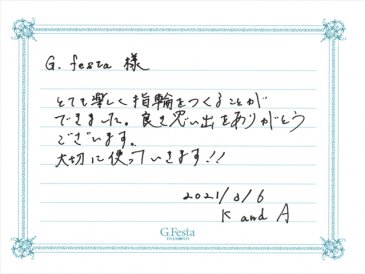 G. festa 様
とても楽しく指輪をつくることが
できました。良き思い出をありがとう
ございます。
大切に使っていきます!!
2021/3/6
K and A
G.Festa
DIAMOND